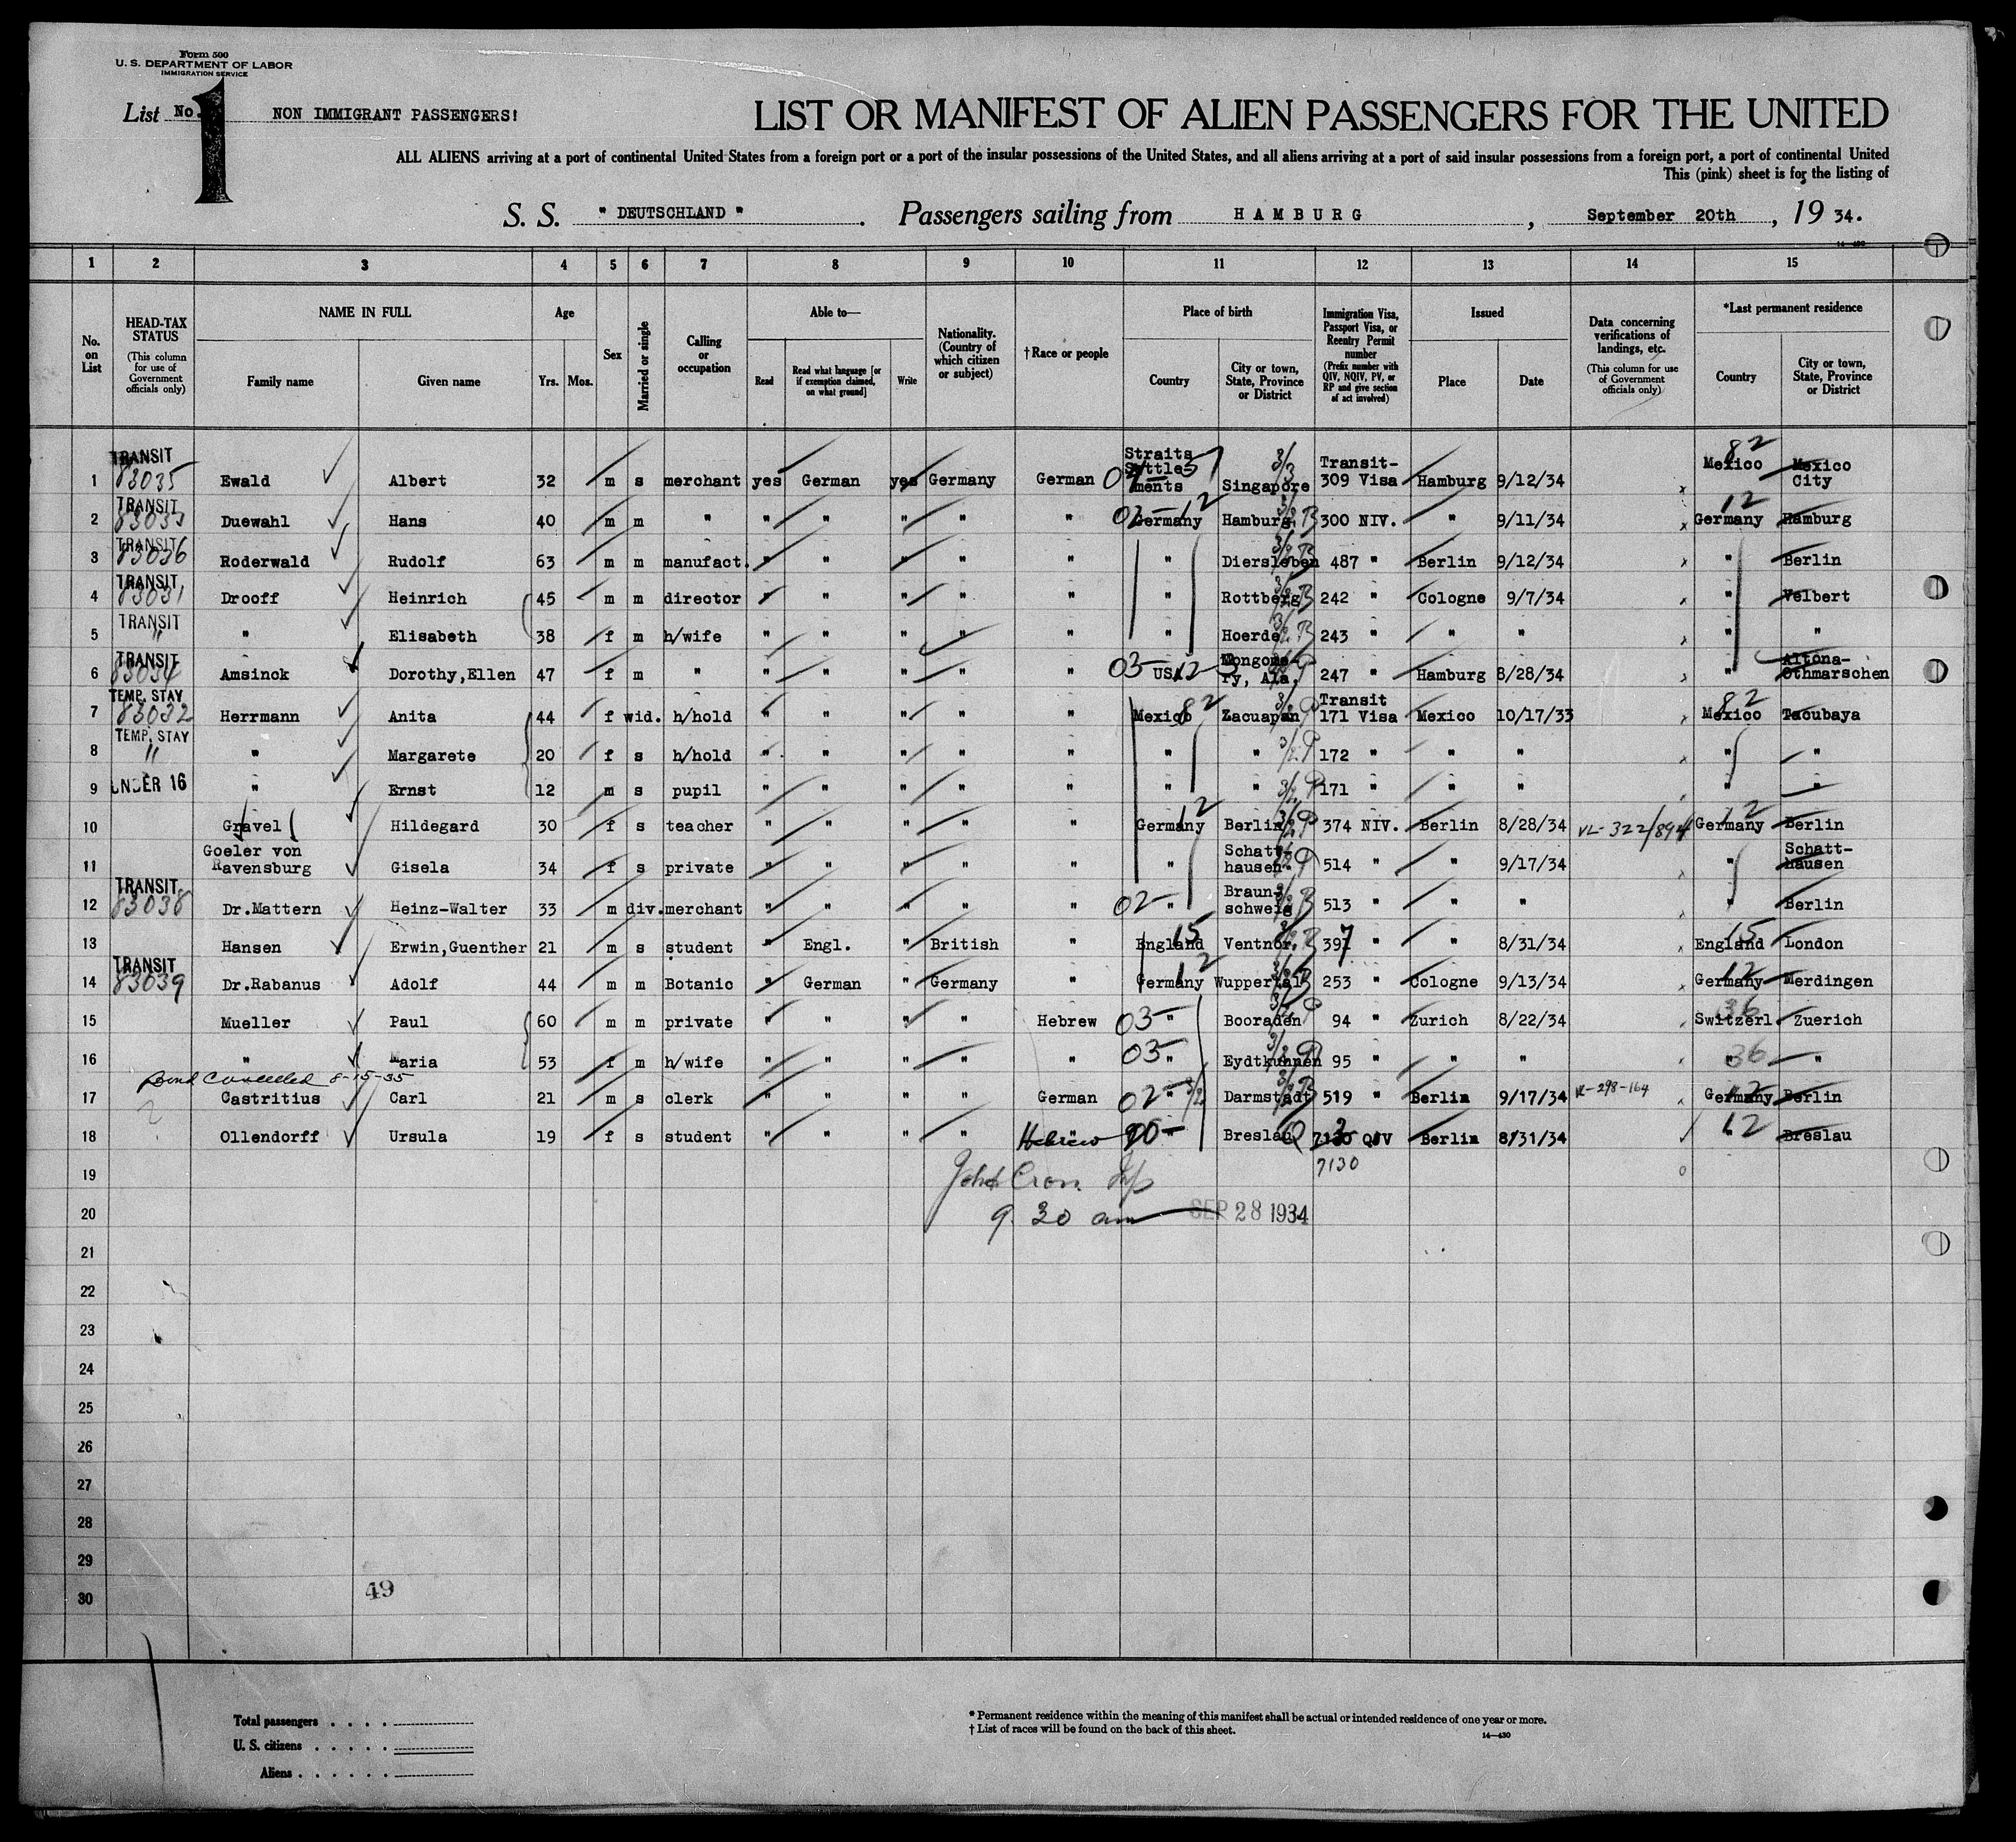 Form 500
U. S. DEPARTMENT OF LABOR
IMMIGRATION SERVICE
List No. 1 NON IMMIGRANT PASSENGERS!
LIST OR MANIFEST OF ALIEN PASSENGERS FOR THE UNITED
ALL ALIENS arriving at a port of continental United States from a foreign port or a port of the insular possessions of the United States, and all aliens arriving at a port of said insular possessions from a foreign port, a port of continental United
This (pink) sheet is for the listing of
S. S. " DEUTSCHLAND " . Passengers sailing from HAMBURG , September 20th , 19 34.
14—430
1 2 3 4 5 6 7 8 9 10 11 12 13 14 15
No. on List
HEAD-TAX STATUS (This column for use of Government officials only)
NAME IN FULL
Family name Given name
Age
Yrs. Mos.
Sex
Married or single
Calling or occupation
Able to—
Read
Read what language [or if exemption claimed, on what ground]
Write
Nationality. (Country of which citizen or subject)
†Race or people
Place of birth
Country
City or town, State, Province or District
Immigration Visa, Passport Visa, or Reentry Permit number (Prefix number with QIV, NQIV, PV, or RP and give section of act involved)
Issued
Place Date
Data concerning verifications of landings, etc. (This column for use of Government officials only)
*Last permanent residence
Country
City or town, State, Province or District
1 TRANSIT 83035 Ewald Albert 32 m s merchant yes German yes Germany German Straits Settlements Singapore 3/3 Transit- 309 Visa Hamburg 9/12/34 82 Mexico Mexico City
2 TRANSIT Duewahl Hans 40 m m " " " " " " 02- Germany 12 Hamburg 300 NIV. " 9/11/34 12 Germany Hamburg
3 TRANSIT 83036 Roderwald Rudolf 63 m m manufact. " " " " " " Diersleben 487 " Berlin 9/12/34 Berlin
4 TRANSIT 83031 Drooff Heinrich 45 m m director " " " " " " Rottberg 242 " Cologne 9/7/34 Velbert
5 TRANSIT " " Elisabeth 38 f m h/wife " " " " " " Hoerde 243 " " " "
6 TRANSIT 83034 Amsinck Dorothy,Ellen 47 f m " " " " " " 03- USA 12 Mongomery, Ala. 247 " Hamburg 8/28/34 " Altona-Othmarschen
7 TEMP. STAY 83032 Herrmann Anita 44 f wid. h/hold " " " " " Mexico 82 Zacuapan Transit 171 Visa Mexico 10/17/33 82 Mexico Tacubaya
8 TEMP. STAY " " Margarete 20 f s h/hold " " " " " " " 172 " " " " "
9 UNDER 16 " Ernst 12 m s pupil " " " " " " " 171 " " " " "
10 Gravel Hildegard 30 f s teacher " " " " " Germany 12 Berlin 374 NIV. Berlin 8/28/34 VL-322/894 12 Germany Berlin
11 Goeler von Ravensburg Gisela 34 f s private " " " " " " Schatthausen. 514 " " 9/17/34 " Schatt-hausen
12 TRANSIT 83038 Dr.Mattern Heinz-Walter 33 m div. merchant " " " " " 02- " Braunschweig 513 " " " " Berlin
13 Hansen Erwin,Guenther 21 m s student " Engl. " British " England 15 Ventnor. 397 " " 8/31/34 15 England London
14 TRANSIT 83039 Dr.Rabanus Adolf 44 m m Botanic " German " Germany " Germany 12 Wuppertal 253 " Cologne 9/13/34 12 Germany Merdingen
15 Mueller Paul 60 m m private " " " " Hebrew 03- " Booraden 94 " Zurich 8/22/34 36 Switzerl. Zuerich
16 " Maria 53 f m h/wife " " " " " 03- " Eydtkuhnen 95 " " " 36 " "
Bond cancelled 8-15-35
17 Castritius Carl 21 m s clerk " " " " German 02- " 3/2 Darmstadt 519 " Berlin 9/17/34 VL-298-164 12 Germany Berlin
18 Ollendorff Ursula 19 f s student " " " " Hebrew " Breslau 7130 QIV Berlin 8/31/34 12 Breslau
19 7130
John Cron Insp
20 9.30 am SEP 28 1934
21
22
23
24
25
26
27
28
29
30
49
Total passengers . . . .
U. S. citizens . . . . .
Aliens . . . . . .
* Permanent residence within the meaning of this manifest shall be actual or intended residence of one year or more.
† List of races will be found on the back of this sheet.
14—430